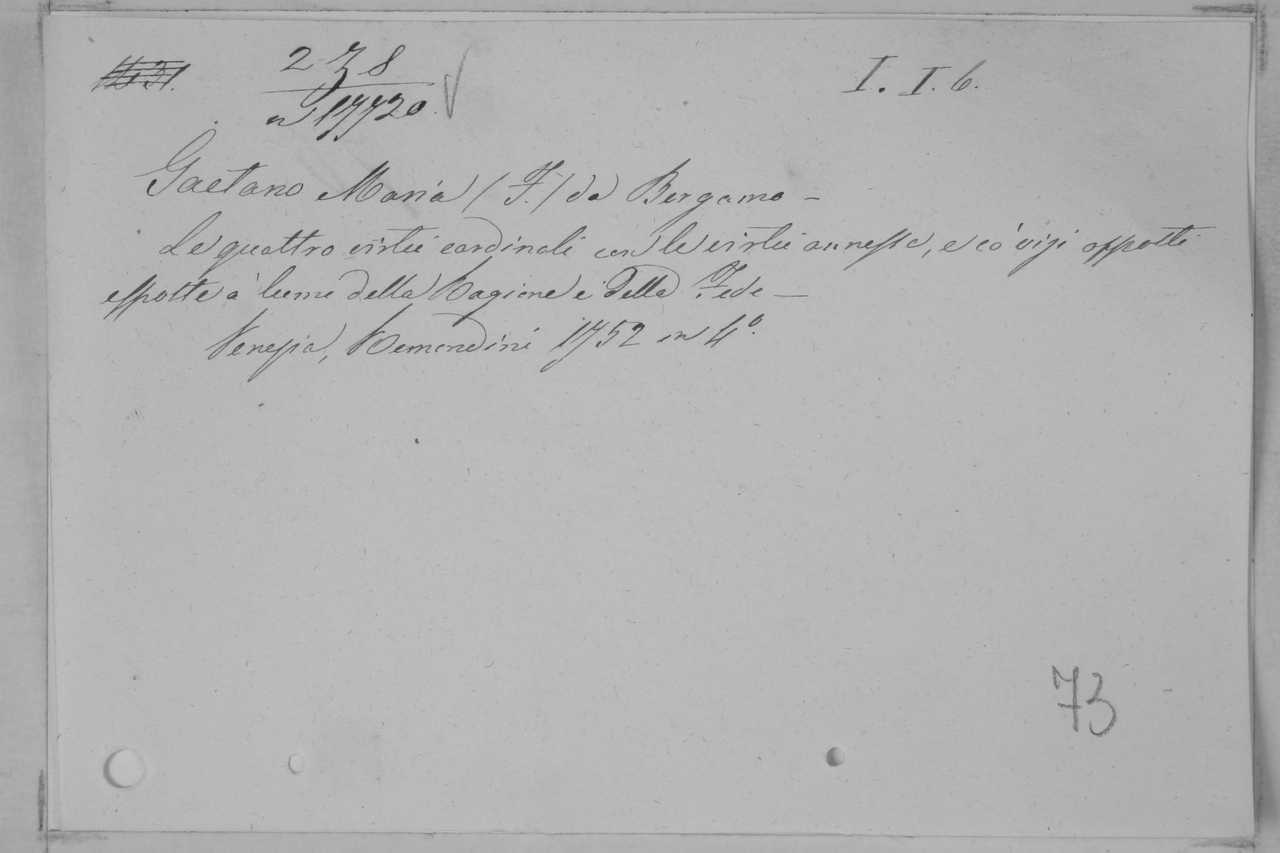 238 I. I. 6.
n 17720.
Gaetano Maria (F.) da Bergamo –
Le quattro virtù cardinali con le virtù annesse, e co' vizi opposti
esposte a' lume della Ragione e della Fede –
Venezia, Remondini 1752 in 4º.
73